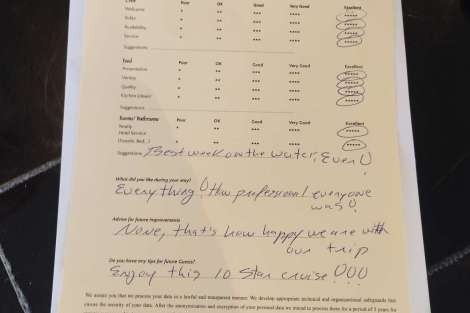 Crew Poor OK Good Very Good Excellent
Welcome * ** *** **** *****
Safety * ** *** **** *****
Availability * ** *** **** *****
Service * ** *** **** *****
Suggestions
Food Poor OK Good Very Good Excellent
Presentation * ** *** **** *****
Variety * ** *** **** *****
Quality * ** *** **** *****
* ** *** **** *****
Suggestions
Poor OK Good Very Good Excellent
* ** *** **** *****
Hotel Service
* ** *** **** *****
Suggestions Best week on the water, Ever!
What did you like during your stay?
Everything! How professional everyone
was!
Advise for future improvements
None, that's how happy we are with
our trip
Do you have any tips for future Guests?
Enjoy this 10 star cruise!!!
We assure you that we process your data in a lawful and transparent manner. We develop appropriate technical and organisational safeguards that
ensure the security of your data. After the anonymization and encryption of your personal data we intend to process them for a period of 5 years for